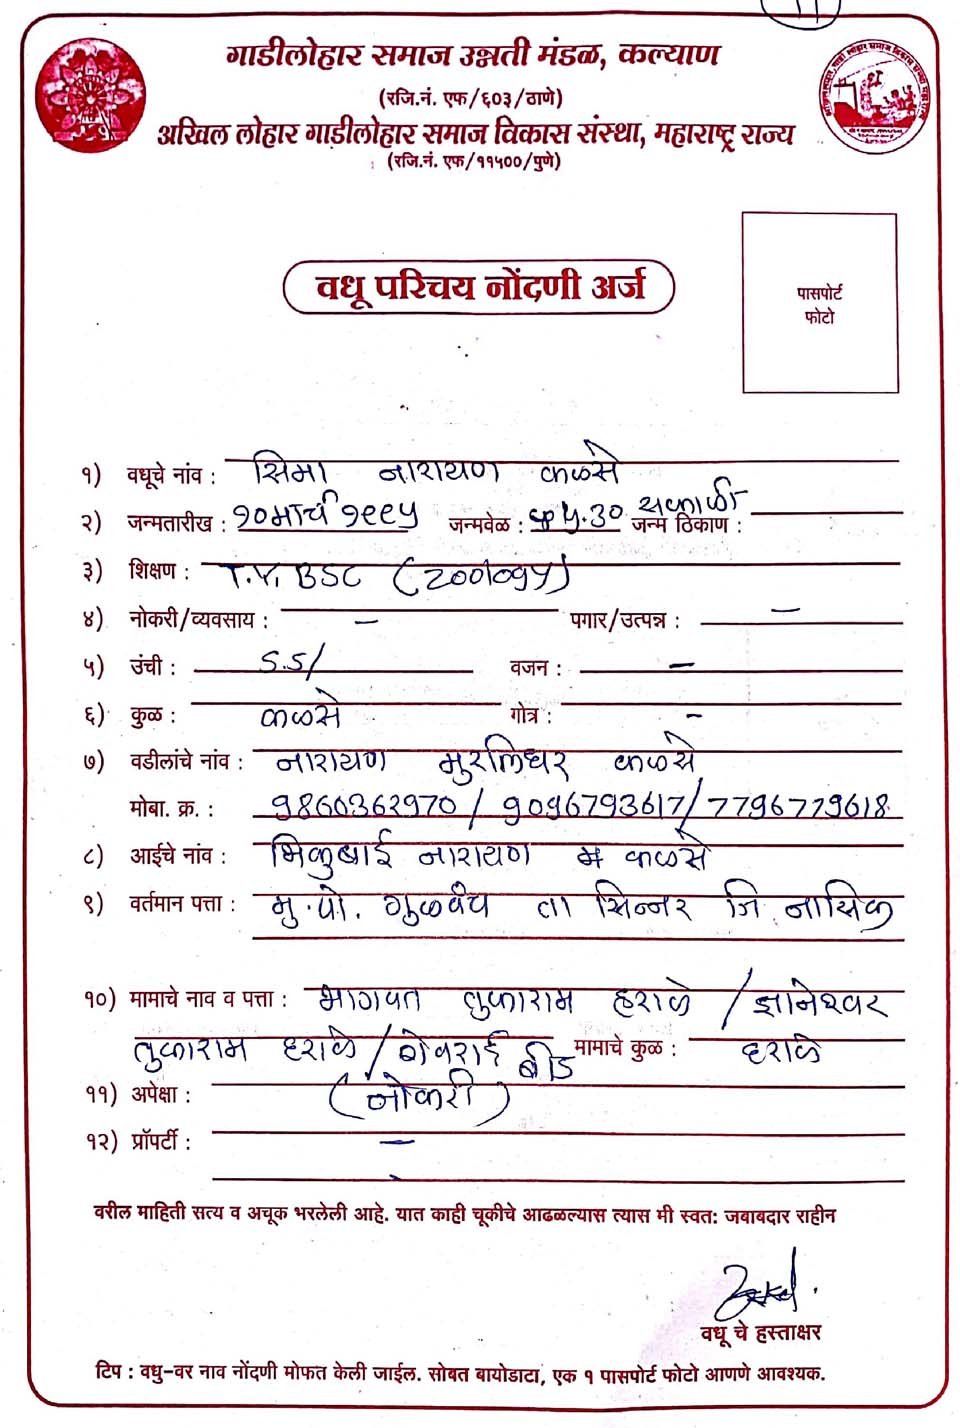 ११
गाडीलोहार समाज उन्नती मंडळ, कल्याण
(रजि.नं. एफ/६०३/ठाणे)
अखिल लोहार गाडीलोहार समाज विकास संस्था, महाराष्ट्र राज्य
(रजि.नं. एफ/११५००/पुणे)
पासपोर्ट
फोटो
वधू परिचय नोंदणी अर्ज
१) वधूचे नांव : सिमा नारायण कळसे
२) जन्मतारीख : १०मार्च १९९५ जन्मवेळ : ५.३० सकाळी जन्म ठिकाण :
३) शिक्षण : T.Y. BSC (Zoology)
४) नोकरी/व्यवसाय : – पगार/उत्पन्न : –
५) उंची : 5.5/ वजन : –
६) कुळ : कळसे गोत्र : -
७) वडीलांचे नांव : नारायण मुरलिधर कळसे
मोबा. क्र. : 9860362970 / 9096793617 / 7796779618
८) आईचे नांव : भिकुबाई नारायण कळसे
९) वर्तमान पत्ता : मु.पो. गुळवंच ता सिन्नर जि नासिक
१०) मामाचे नाव व पत्ता : भागवत तुकाराम हराळे / ज्ञानेश्वर
तुकाराम हराळे / गेवराई बीड मामाचे कुळ : हराळे
११) अपेक्षा : (नोकरी)
१२) प्रॉपर्टी : –
वरील माहिती सत्य व अचूक भरलेली आहे. यात काही चूकीचे आढळल्यास त्यास मी स्वत: जबाबदार राहीन
वधू चे हस्ताक्षर
टिप : वधु-वर नाव नोंदणी मोफत केली जाईल. सोबत बायोडाटा, एक १ पासपोर्ट फोटो आणणे आवश्यक.